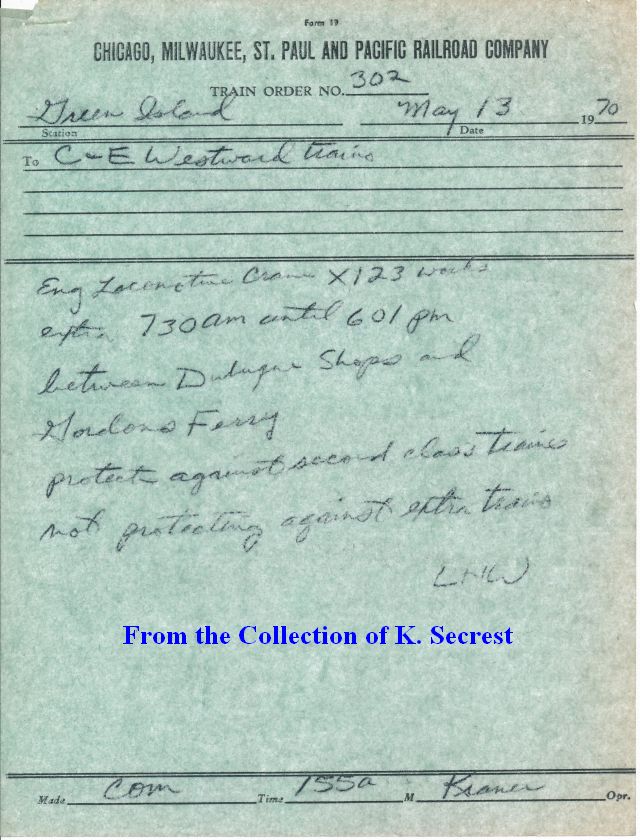 Form 19
CHICAGO, MILWAUKEE, ST. PAUL AND PACIFIC RAILROAD COMPANY
TRAIN ORDER NO. 302
Green Island May 13 1970
Station Date
To C-E Westward trains
Eng Locomotive Crane X123 works
extra 730am until 601pm
between Dubuque Shops and
Gordons Ferry
protect against second class trains
not protecting against extra trains
From the Collection of K. Secrest
Made Com Time 155a M Kramer Opr.